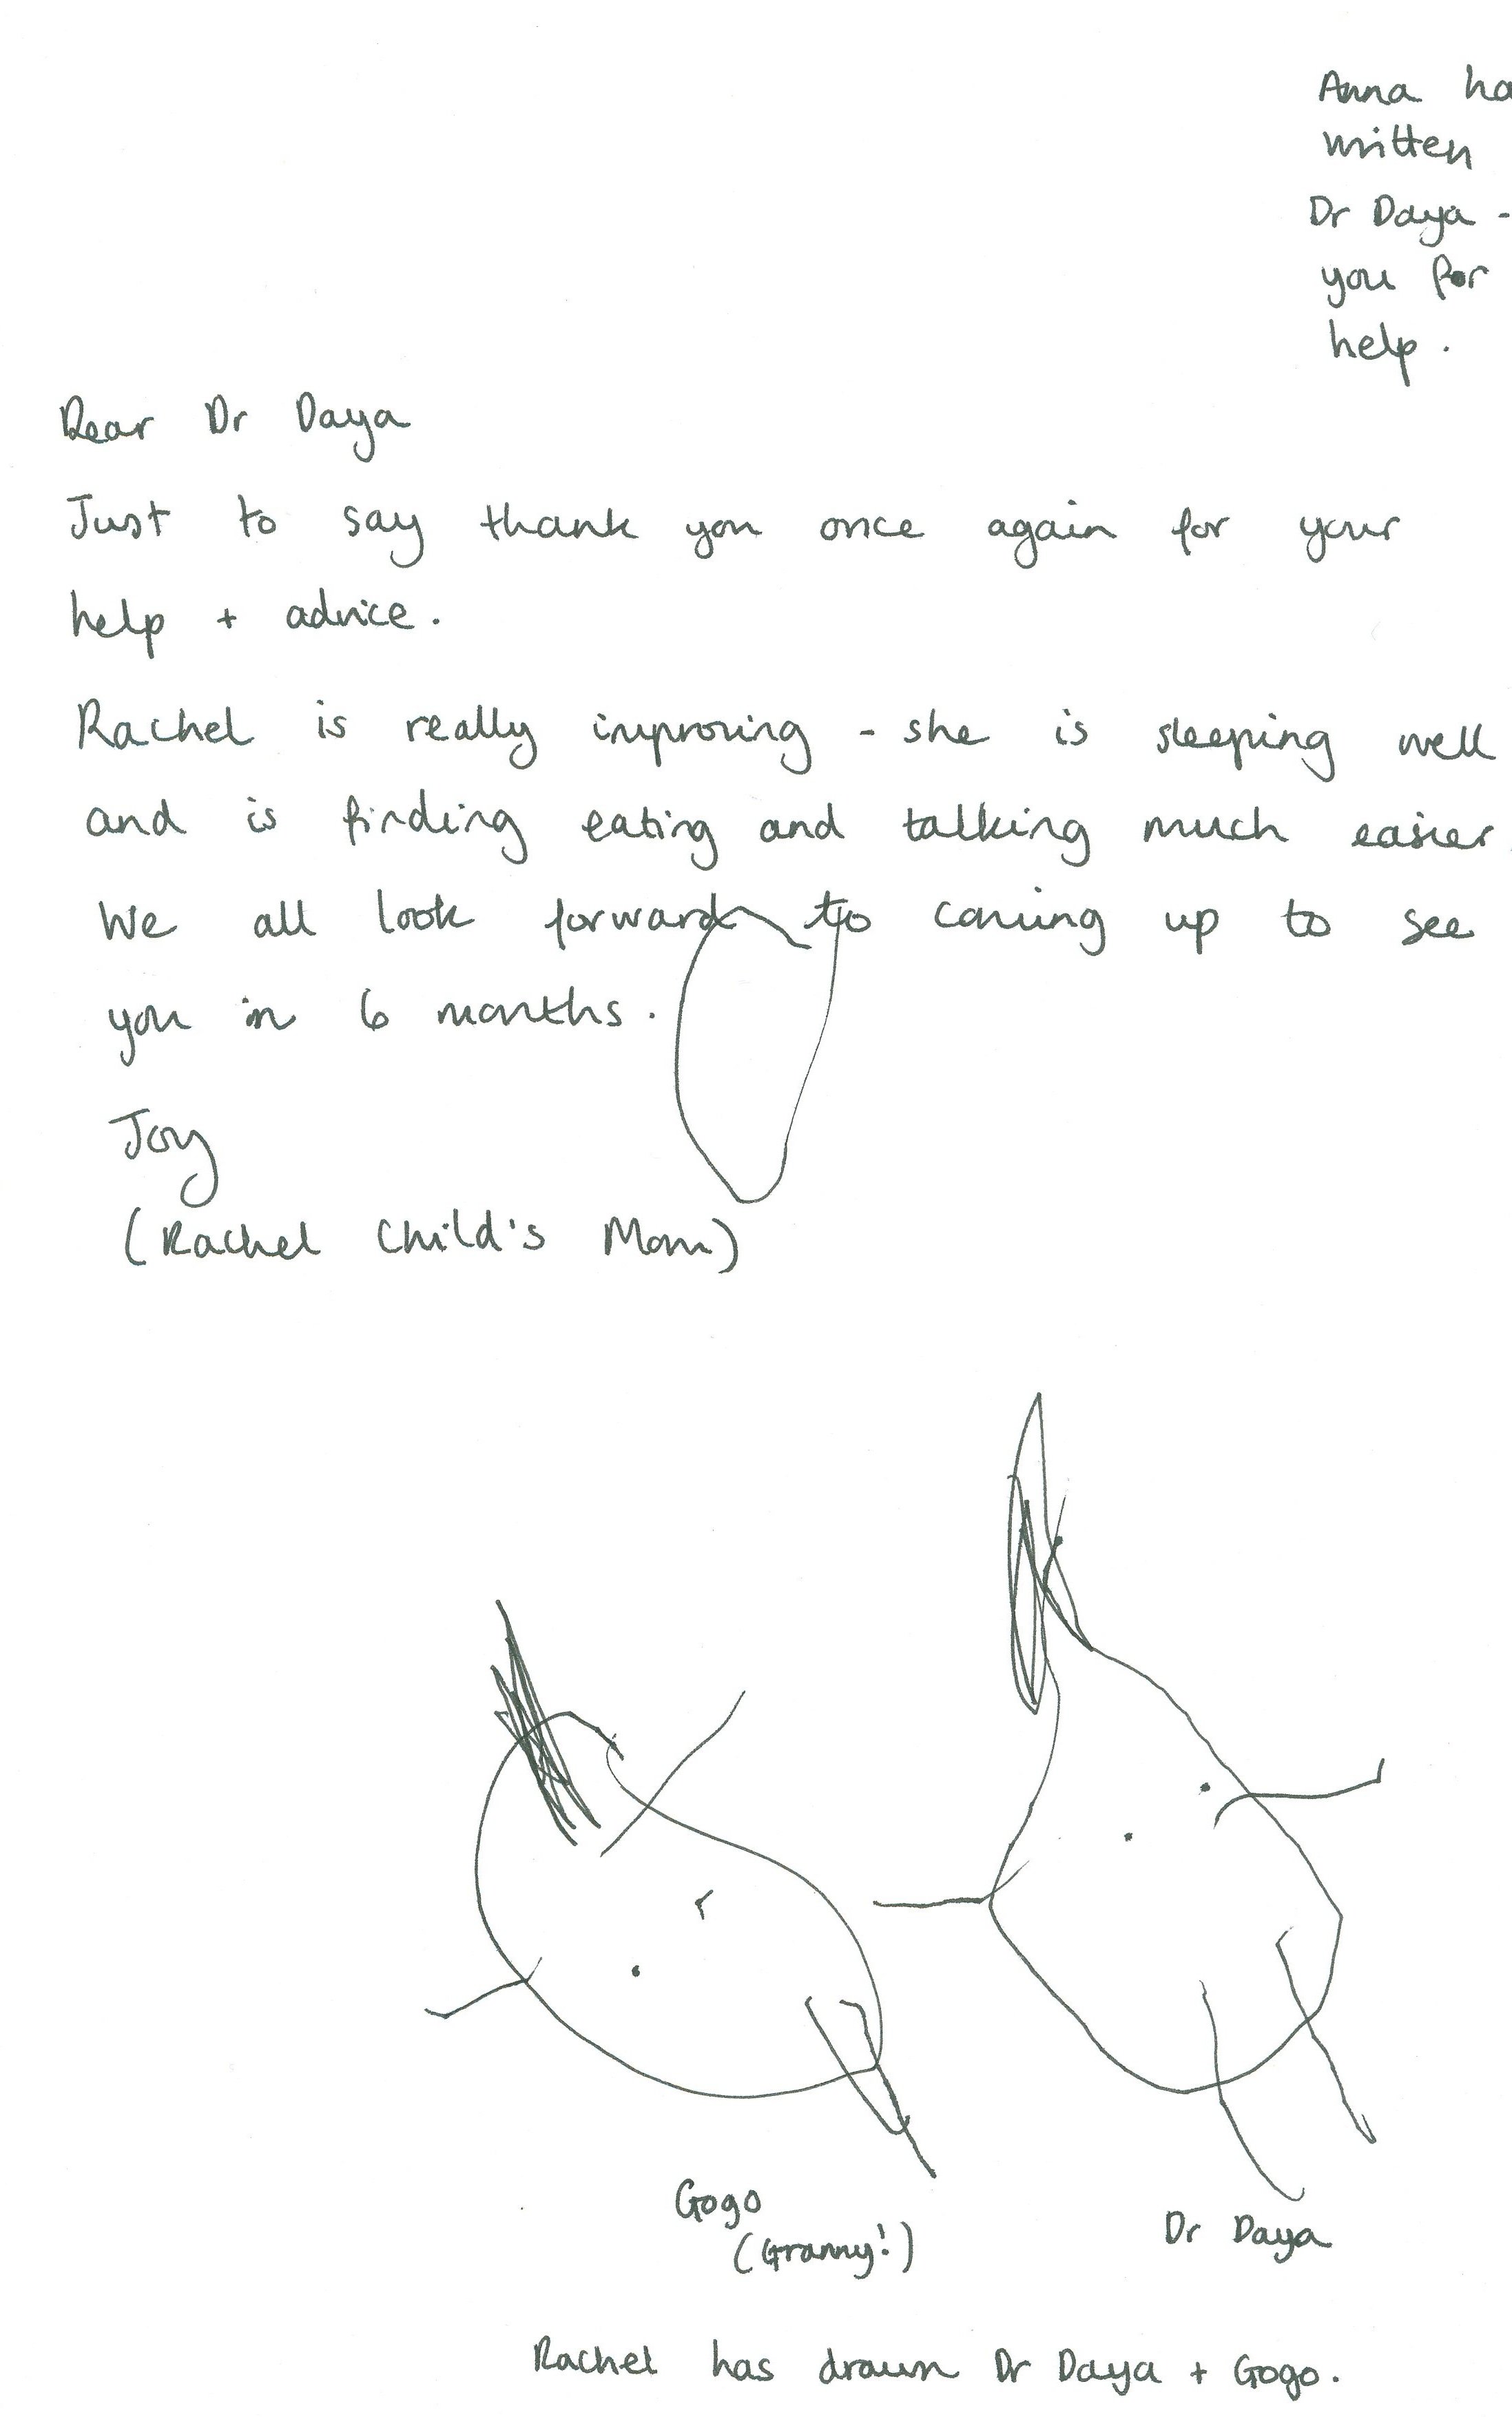 Anna ha
written
Dr Daya -
you for
help.
Dear Dr Daya
Just to say thank you once again for your
help + advice.
Rachel is really improving - she is sleeping well
and is finding eating and talking much easier.
We all look forward to coming up to see
you in 6 months.
Joy
(Rachel Child's Mom)
Gogo
(Granny!)
Dr Daya
Rachel has drawn Dr Daya + Gogo.